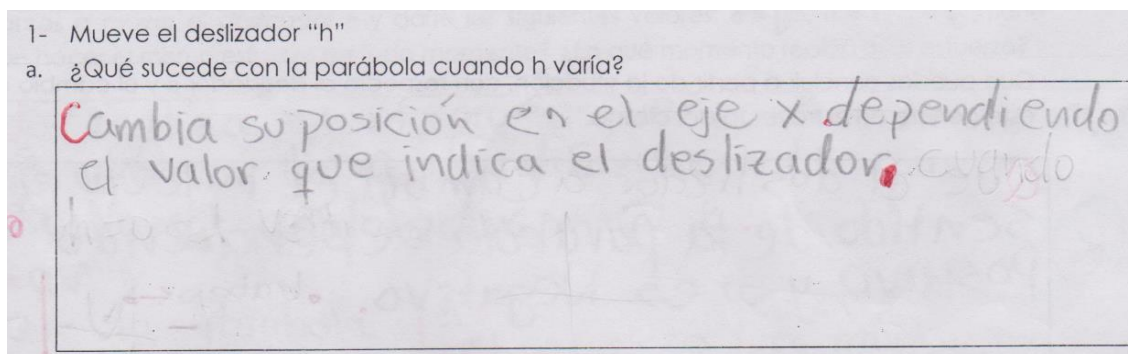 1- Mueve el deslizador “h”
a. ¿Qué sucede con la parábola cuando h varía?
Cambia su posición en el eje x dependiendo
el valor que indica el deslizador. cuando